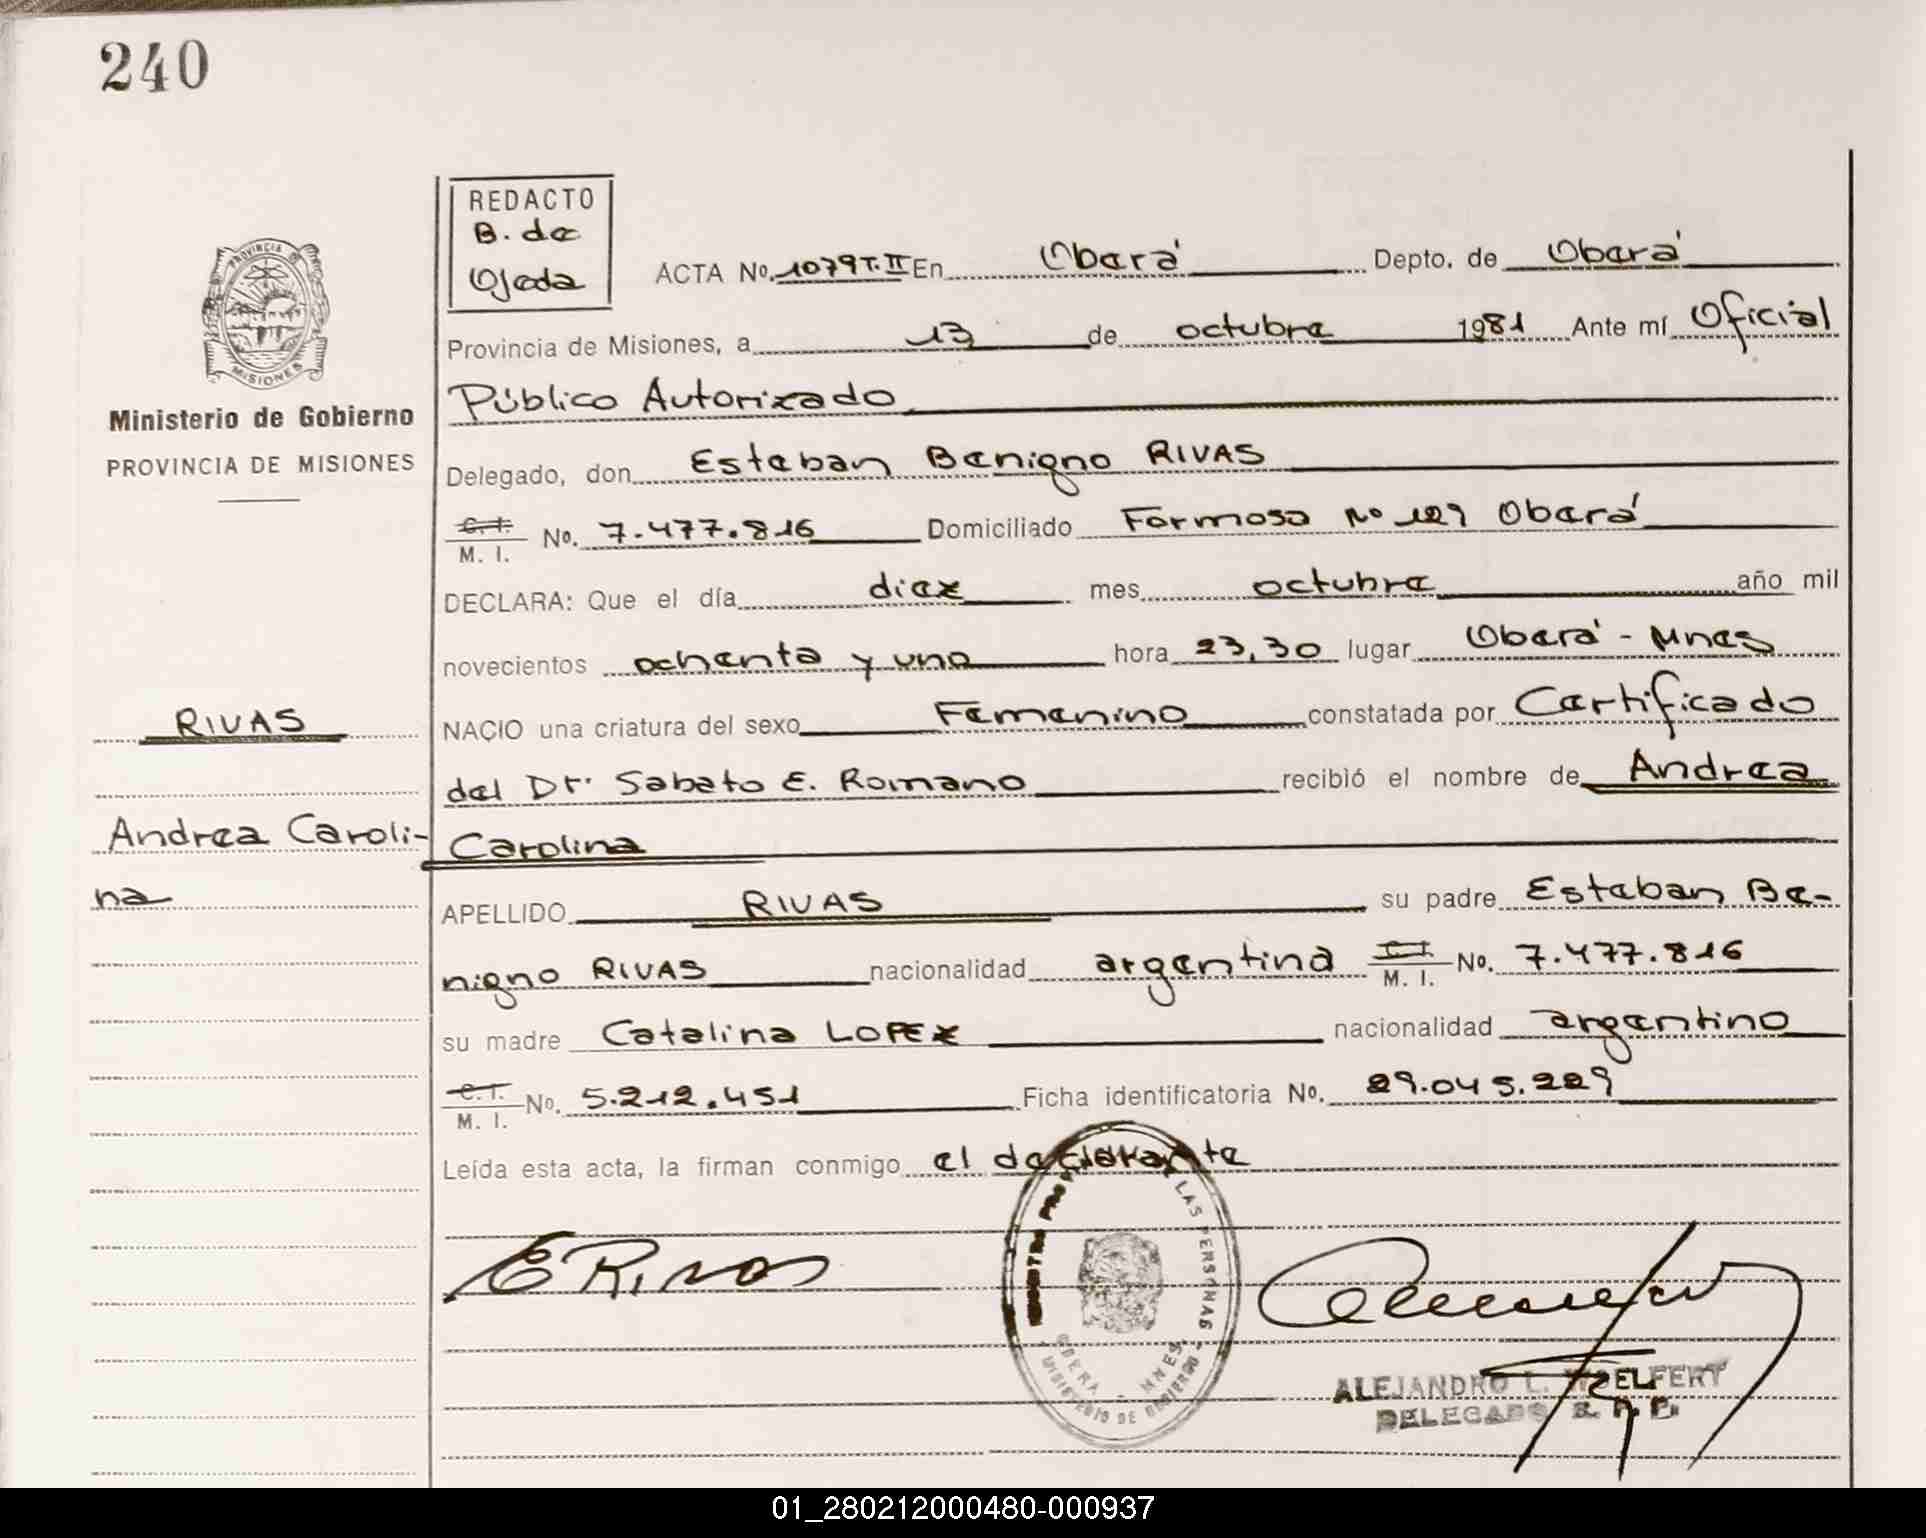 240
REDACTO
B. de
Ojeda
ACTA No. 1079 T. II En Oberá Depto. de Oberá
Provincia de Misiones, a 13 de octubre 1981 Ante mí Oficial
Público Autorizado
Ministerio de Gobierno
PROVINCIA DE MISIONES
Delegado, don Esteban Benigno RIVAS
C. I. M. I. No. 7.477.816 Domiciliado Formosa No 129 Oberá
DECLARA: Que el día diez mes octubre año mil
novecientos ochenta y uno hora 23,30 lugar Oberá - Mnes
RIVAS
NACIO una criatura del sexo Femenino constatada por Certificado
del Dr. Sabato E. Romano recibió el nombre de Andrea
Andrea Caroli-
na
Carolina
APELLIDO RIVAS su padre Esteban Be-
nigno RIVAS nacionalidad argentina C. I. M. I. No. 7.477.816
su madre Catalina LOPEZ nacionalidad argentino
C. I. M. I. No. 5.212.451 Ficha identificatoria No. 29.045.229
Leída esta acta, la firman conmigo el declarante
E Rivas
LAS PERSONAS
OBERA - MNES.
MINISTERIO DE GOBIERNO
ALEJANDRO L. WELFERT
DELEGADO R. P. P.
PROVINCIA DE
MISIONES
01_280212000480-000937